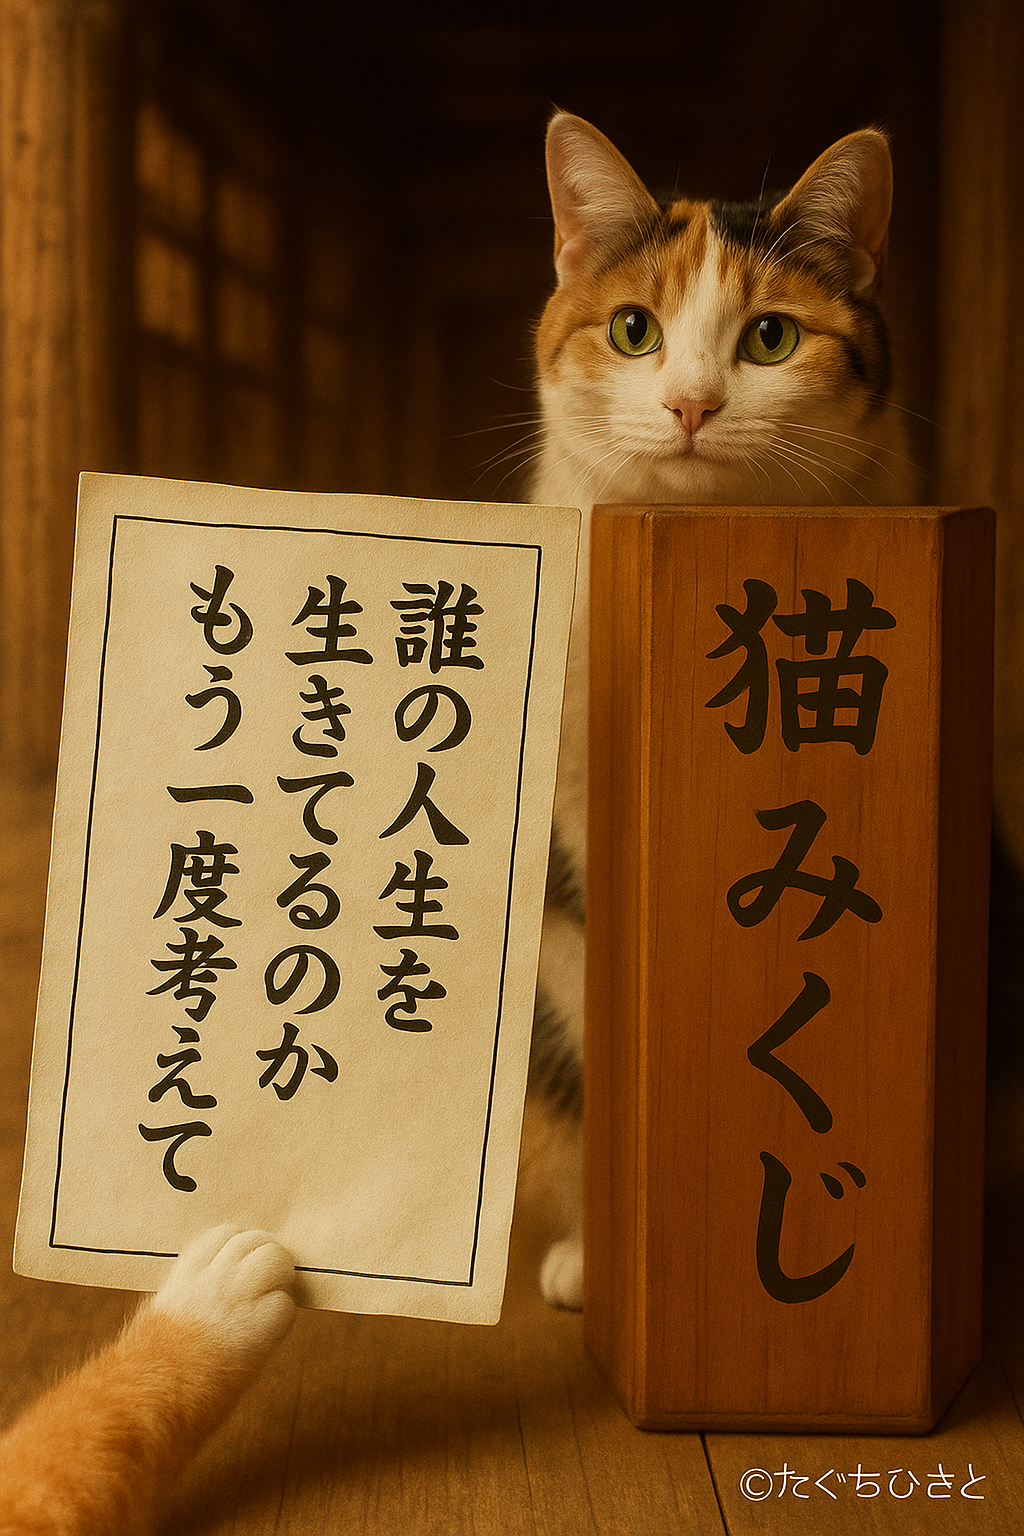 誰の人生を
生きてるのか
もう一度考えて
猫みくじ
©たぐちひさと